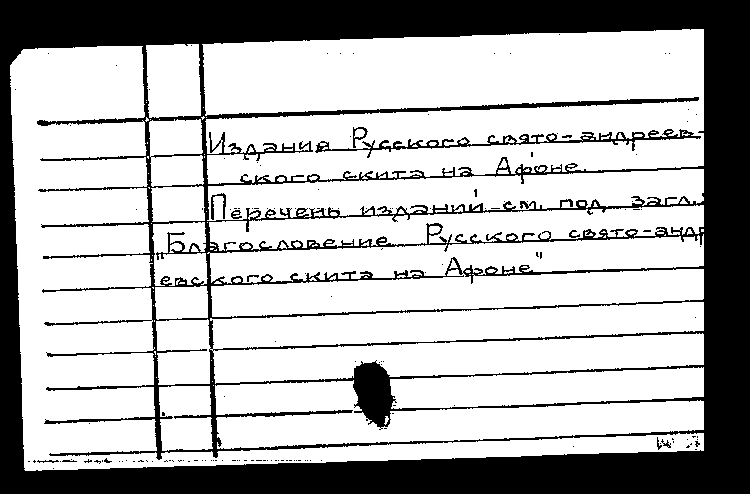 Издания Русского свято-андреев-
ского скита на Афоне.
Перечень изданий см. под загл.:
„Благословение Русского свято-андр
евского скита на Афоне"